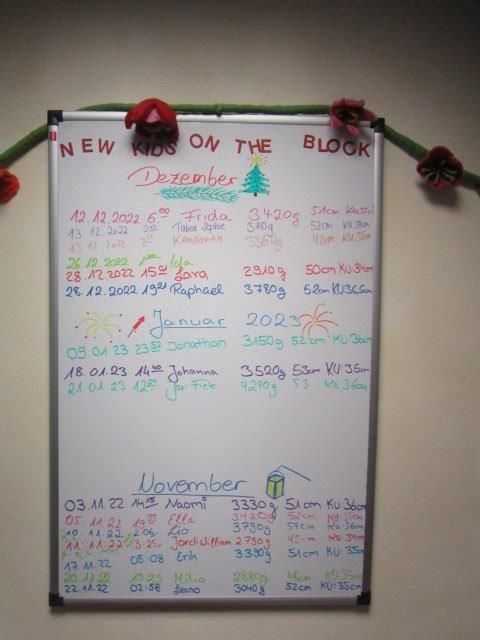 NEW KIDS ON THE BLOCK
Dezember
12.12.2022 6.00 Frida 3420g 51cm KU:35cm
13 12 2022 Sophie 52cm KU 35cm
13 12 2022 Konstantin 3360g 48cm KU 35cm
26 12 2022 Ida
28 12 2022 15 Lara 2910g 50cm KU:34cm
28.12.2022 19 21 Raphael 3780g 52cm KU 36,5cm
Januar 2023
09.01.23 23 Jonathan 3150g 52cm KU 36cm
18.01.23 14 Johanna 3520g 53cm KU:35cm
21 01 23 12 4240g 53 KU 36cm
November
03.11.22 14 15 Naomi 3330g 51cm KU 36cm
05. 11 22 19 Ella 3420g 52cm KU 35cm
11. 22 2 06 Leo 3790g 54cm KU 36cm
11.11.22 William 2790g KU 34cm
17.11.22 05:08 Erik 3390g 51cm KU 35cm
20 11 22 19 23 Milia 2880g 48cm KU 35cm
22.11.22 02:56 3040g 52cm KU:35cm